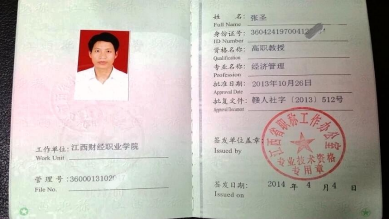 工作单位: 江西财经职业学院
Work Unit
管理号: 3600013102
File No.
姓名 张圣
Full Name
身份证号: 36042419700412
ID Number
资格名称: 高职教授
Qualification
专业名称: 经济管理
Profession
批准日期: 2013年10月26日
Approval Date
批复文件: 赣人社字〔2013〕512号
Approval Document
签发单位盖章:
Issued by
江西省职称工作办公室
专业技术资格
专用章
签发日期: 2014年4月4日
Issued Date